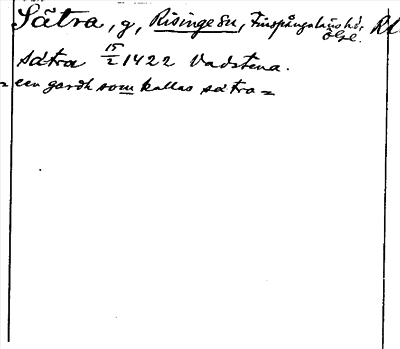 Sätra, g, Risinge sn, Finspångaläns hd, RA
Ögl.
sätra 15/2 1422 Vadstena.
= een gardh som kallas sätra =